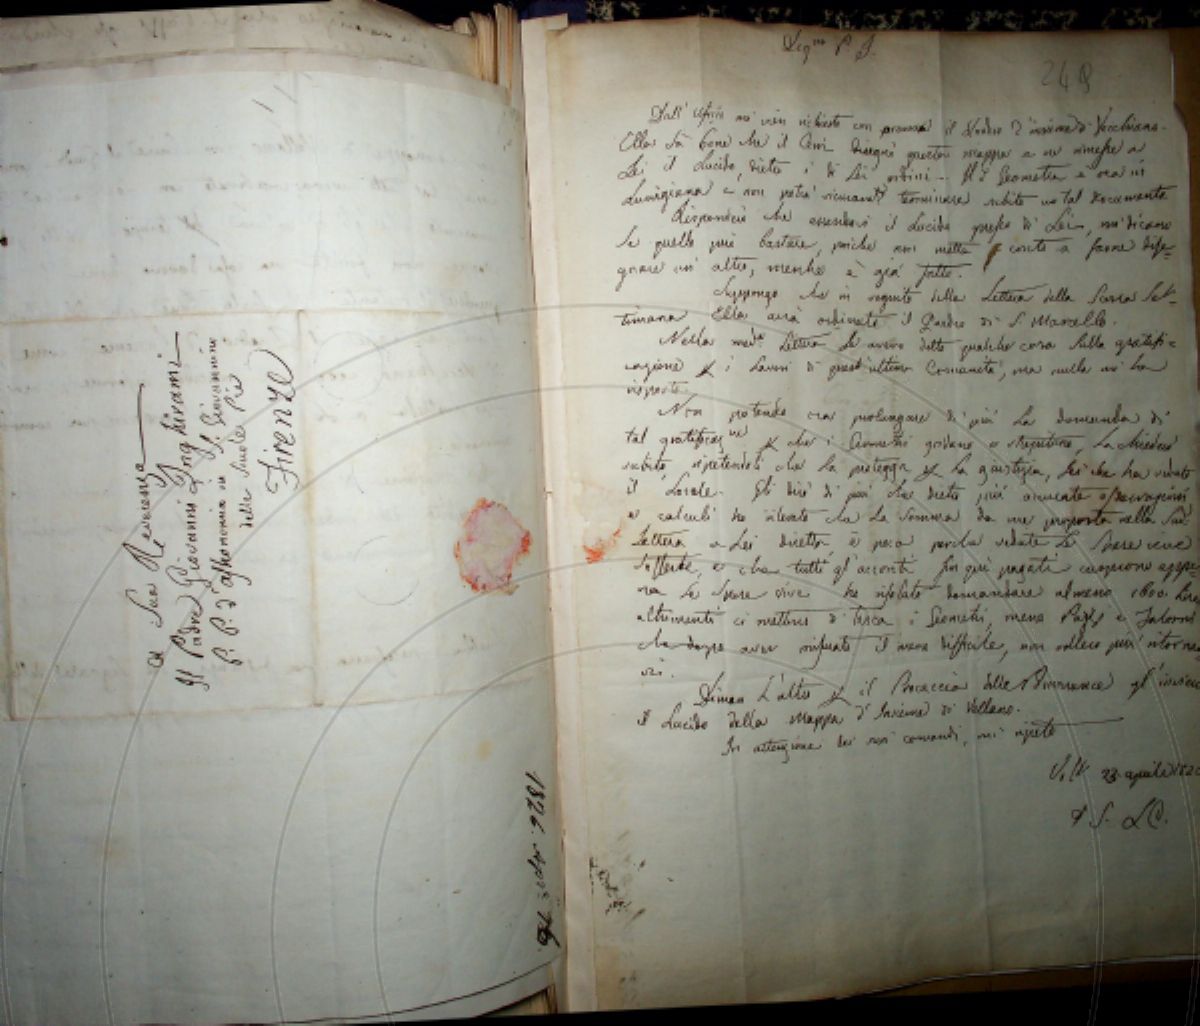 A Sua Reverenza
Il Padre Giovanni Inghirami
P. P. d'astronomia in S. Giovannino
delle Scuole Pie
Firenze
1826. Apri
P. S.
248
Dall' Ufizio mi vien richiesto con il d'insieme di Vecchiano.
Ella sà bene che il Cini disegnò questa mappa e ne rimesse a
Lei il Lucido, dietro i di Lei ordini. Il d. Geometra è ora in
Lunigiana e non potrà terminare subito un tal documento
Risponderò che essendovi il Lucido presso di Lei, mi dicano
se quello può bastare, poiche non mette conto a farne dise-
gnare un' altro, mentre è già fatto.
Suppongo che in seguito della Lettera della Scorsa Set-
timana Ella avrà ordinato il Quadro di S. Marcello.
Nella med.a Lettera Le avevo detto qualche cosa sulla gratifi-
cazione i lavori di quest'ultima Comunità, ma nulla mi ha
risposto.
Non potendo ora prolungare di più La domanda di
tal che i Geometri gridano a La chiederò
subito, ripetendoli che La protegga La giustizia, Lei che ha veduto
il Locale. Gli dirò di più che dietro più accurate osservazioni
e calculi ho rilevato che La somma da me proposta nella Sua
Lettera a Lei diretta, è poca per le vedute Le spese vive
sofferte, e che tutti gl' acconti fin quì pagati cuoprono appe-
na Le spese vive ho risoluto domandare almeno 1600. Lire
altrimenti ci mettono di tasca i Geometri, meno e
che dopo aver il meno difficile, non vollero più ritornar-
vi.
Diman L'altro il Procaccia delle gl'invierò
il Lucido della Mappa d'Insieme di Vellano.
In attenzione dei suoi comandi, mi ripeto
23. aprile